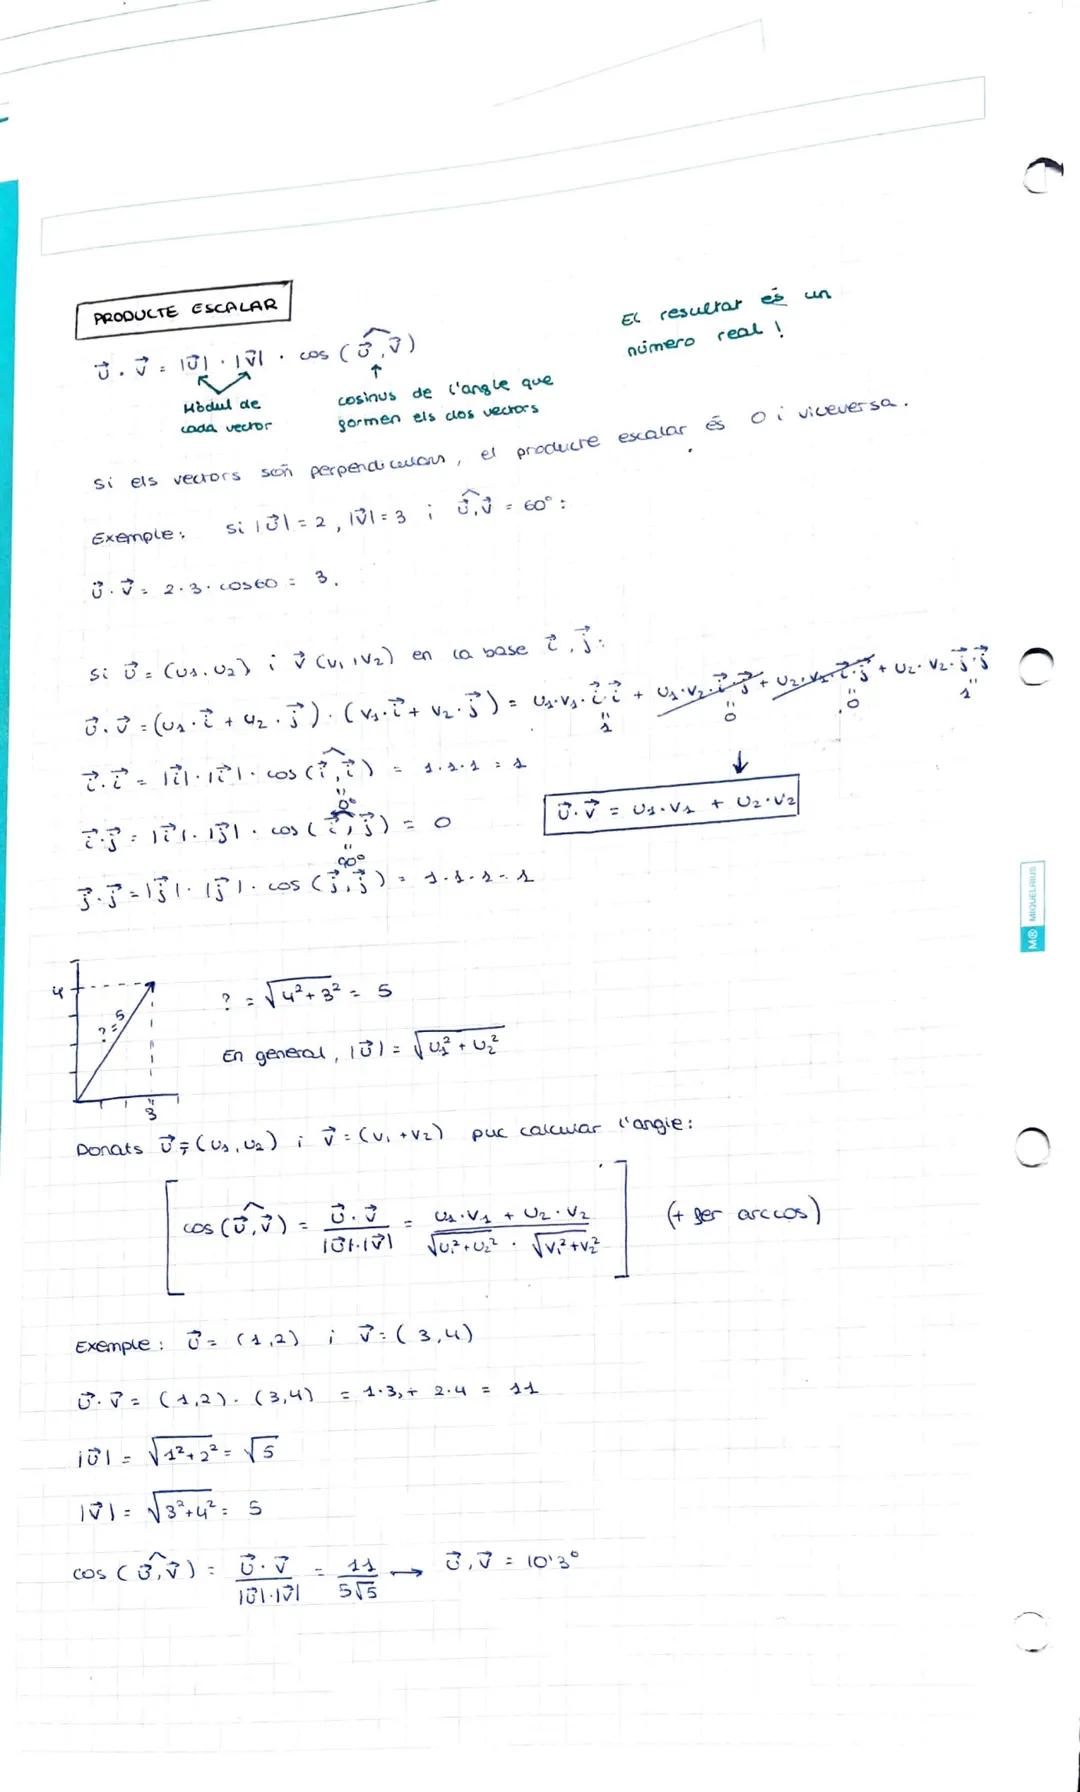 PRODUCTE ESCALAR
El resultat és un
número real !
u⃗ · v⃗ = |u⃗| · |v⃗| · cos (u⃗,v⃗)
Mòdul de
cada vector
cosinus de l'angle que
formen els dos vectors
Si els vectors són perpendiculars, el producte escalar és 0 i viceversa.
Exemple: si |u⃗| = 2, |v⃗| = 3 i u⃗,v⃗ = 60°:
u⃗ · v⃗ = 2·3·cos60 = 3.
Si u⃗ = (u₁, u₂) i v⃗ (v₁, v₂) en la base i⃗, j⃗:
u⃗ · v⃗ = (u₁ · i⃗ + u₂ · j⃗) · (v₁ · i⃗ + v₂ · j⃗) = u₁·v₁·i⃗·i⃗ + u₁·v₂·i⃗·j⃗ + u₂·v₁·i⃗·j⃗ + u₂·v₂·j⃗·j⃗
" 1 " 0 " 0 " 1
i⃗ · i⃗ = |i⃗| · |i⃗| · cos (i⃗,i⃗) = 1·1·1 = 1
" 0°
u⃗ · v⃗ = u₁·v₁ + u₂·v₂
i⃗ · j⃗ = |i⃗| · |j⃗| · cos (i⃗,j⃗) = 0
" 90°
j⃗ · j⃗ = |j⃗| · |j⃗| · cos (j⃗,j⃗) = 1·1·1 = 1
4
? = 5
3
? = √4²+3² = 5
En general, |u⃗| = √u₁² + u₂²
Donats u⃗ = (u₁, u₂) i v⃗ = (v₁ + v₂) puc calcular l'angle:
cos (u⃗,v⃗) = u⃗ · v⃗ / |u⃗|·|v⃗| = u₁·v₁ + u₂·v₂ / √u₁²+u₂² · √v₁²+v₂² (+ fer arccos)
Exemple: u⃗ = (1,2) i v⃗ = (3,4)
u⃗ · v⃗ = (1,2) · (3,4) = 1·3, + 2·4 = 11
|u⃗| = √1²+2² = √5
|v⃗| = √3²+4² = 5
cos (u⃗,v⃗) = u⃗ · v⃗ / |u⃗|·|v⃗| = 11 / 5√5 → u⃗,v⃗ = 10'3°
M® MIQUELRIUS